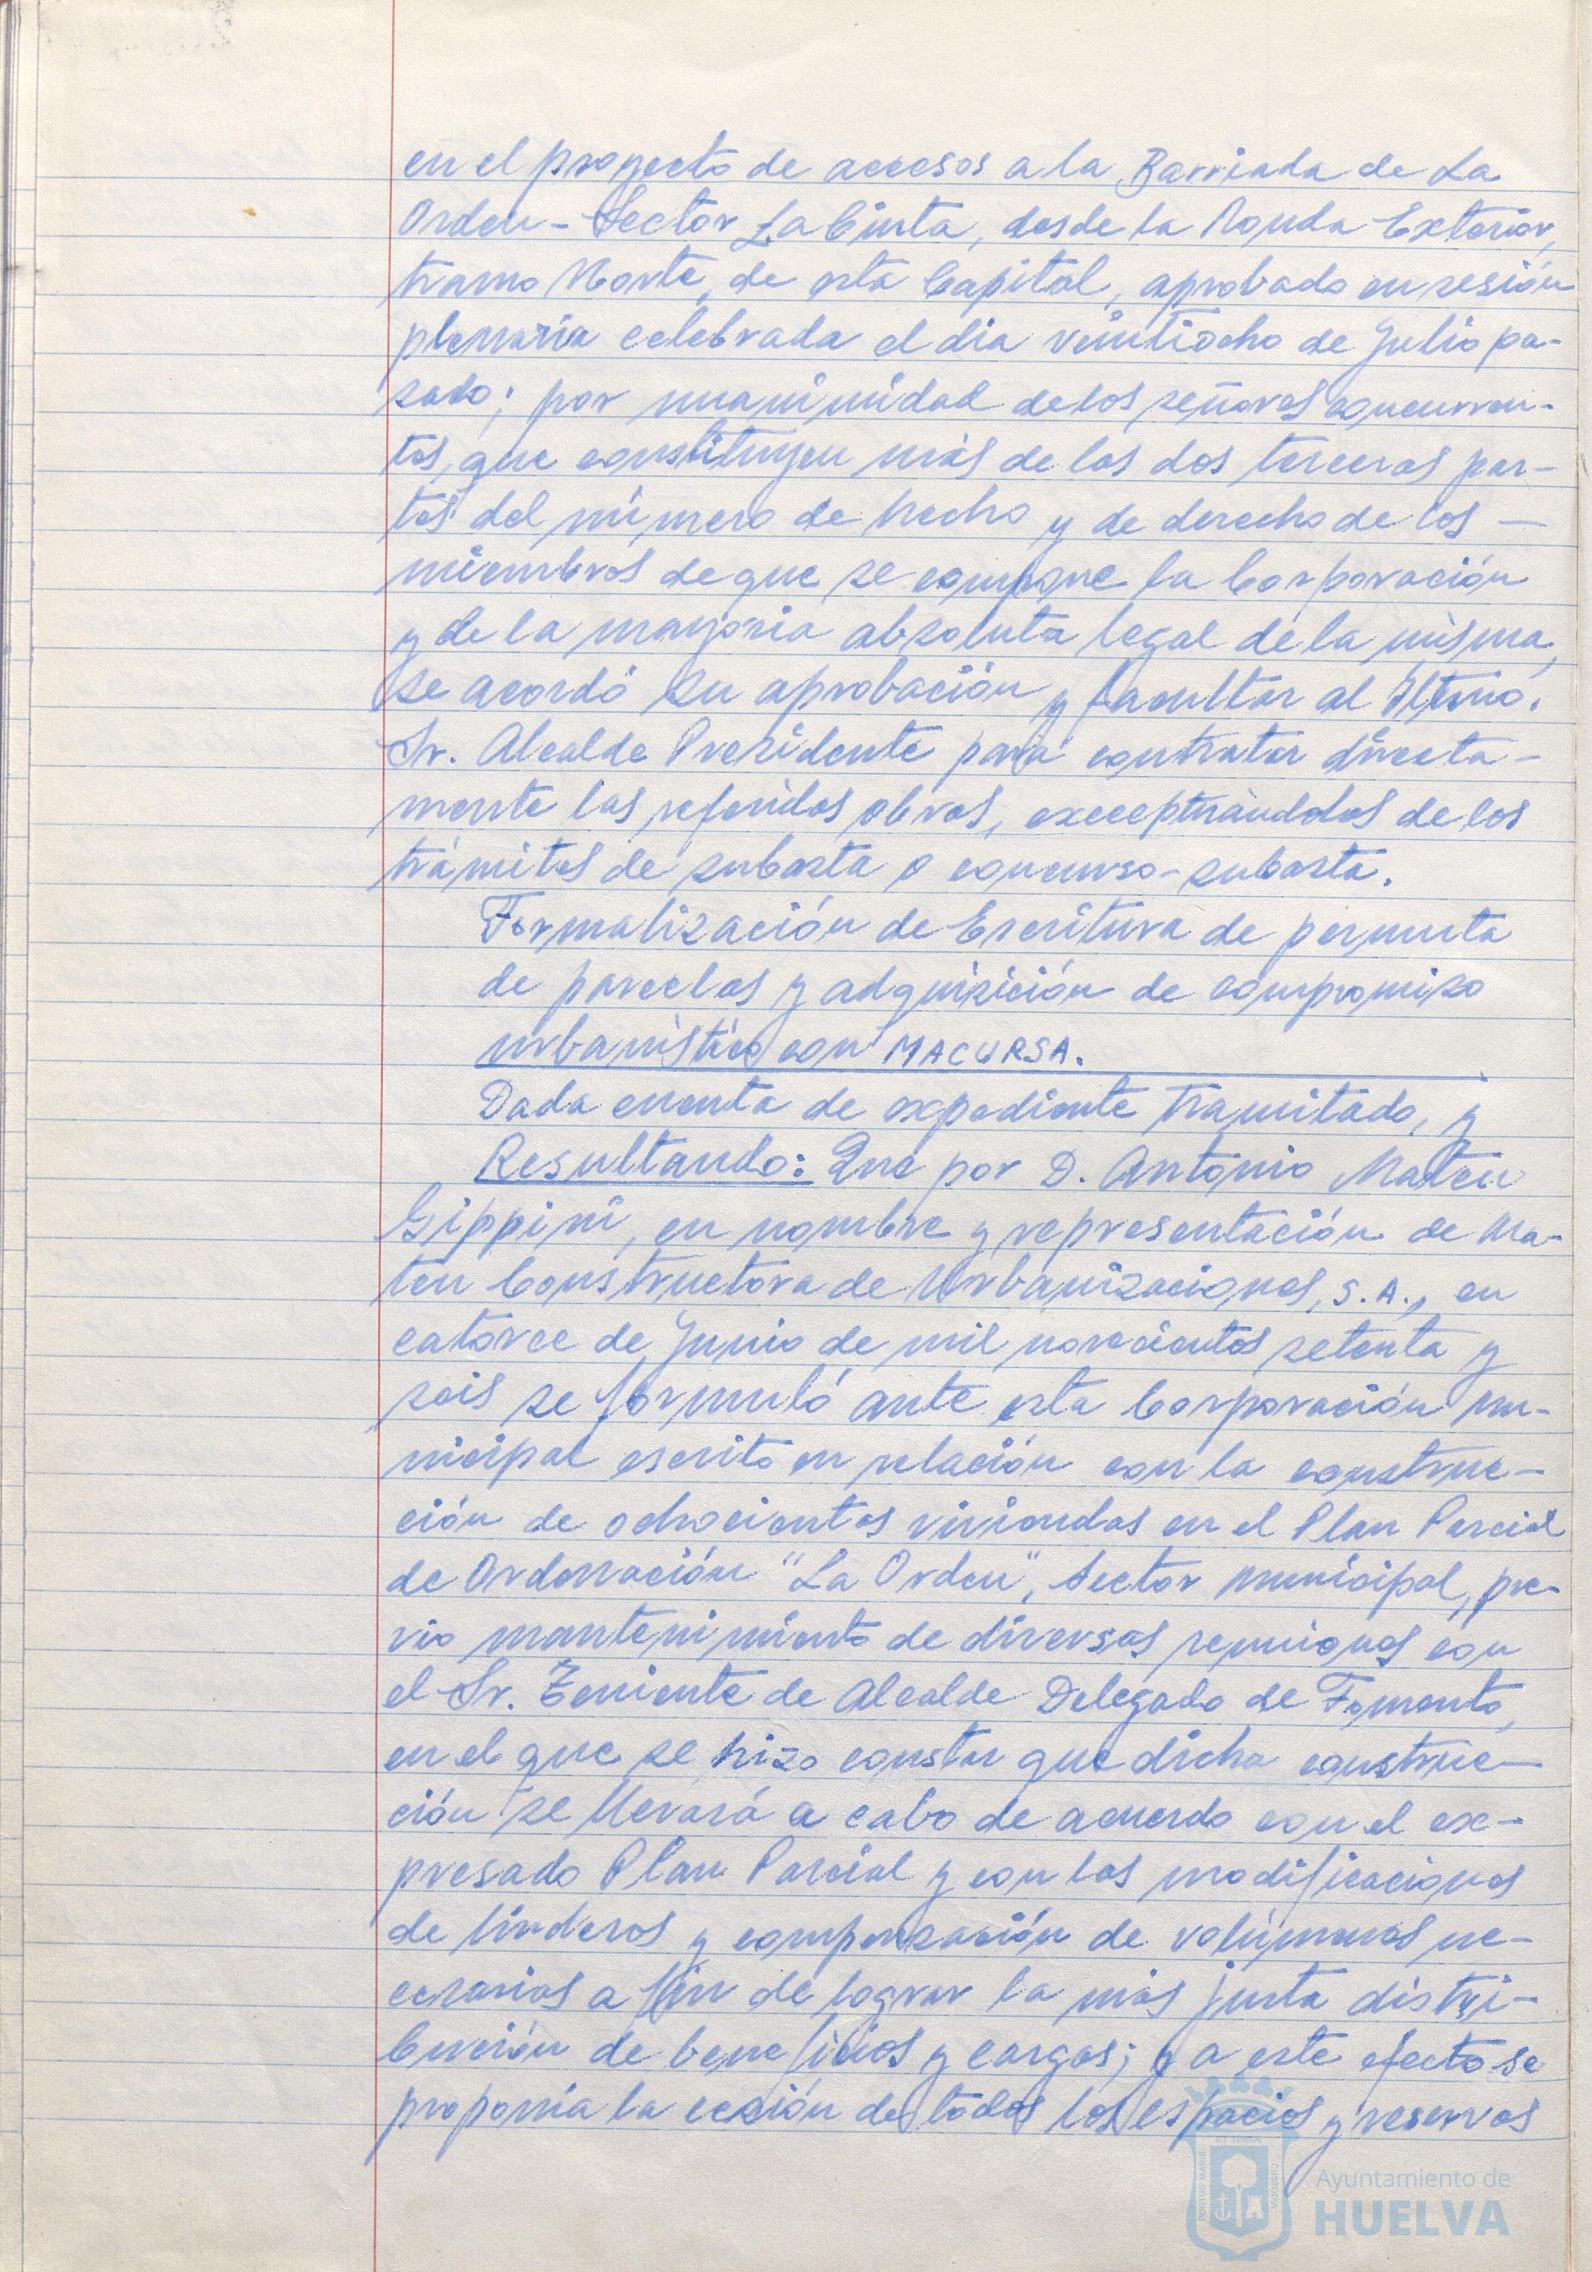 en el proyecto de accesos a la Barriada de La
Orden-Sector La Cinta, desde la Ronda Exterior,
tramo Norte, de esta Capital, aprobado en sesión
plenaria celebrada el dia veintiocho de Julio pa-
sado; por unanimidad de los señores concurren-
tes, que constituyen más de las dos terceras par-
tes del número de hecho y de derecho de los —
miembros de que se compone la Corporación
y de la mayoria absoluta legal de la misma,
se acordó su aprobación y facultar al Iltmo.
Sr. Alcalde Presidente para contratar directa-
mente las referidas obras, exceptuándolas de los
trámites de subasta o concurso-subasta.
Formalización de Escritura de permuta
de parcelas y adquisición de compromiso
urbanístico con MACURSA.
Dada cuenta de expediente tramitado, y
Resultando: Que por D. Antonio Mateu
Gippini, en nombre y representación de Ma-
teu Constructora de Urbanizaciones, S.A., en
catorce de Junio de mil novecientos setenta y
seis se formuló ante esta Corporación mu-
nicipal escrito en relación con la construc-
ción de ochocientas viviendas en el Plan Parcial
de Ordenación "La Orden", Sector municipal, pre-
vio mantenimiento de diversas reuniones con
el Sr. Teniente de Alcalde Delegado de Fomento,
en el que se hizo constar que dicha construc-
ción se llevará a cabo de acuerdo con el ex-
presado Plan Parcial y con las modificaciones
de linderos y compensación de volúmenes ne-
cesarios a fin de lograr la más justa distri-
bución de beneficios y cargas; y a este efecto se
proponía la cesión de todos los espacios y reservas
Ayuntamiento de
HUELVA